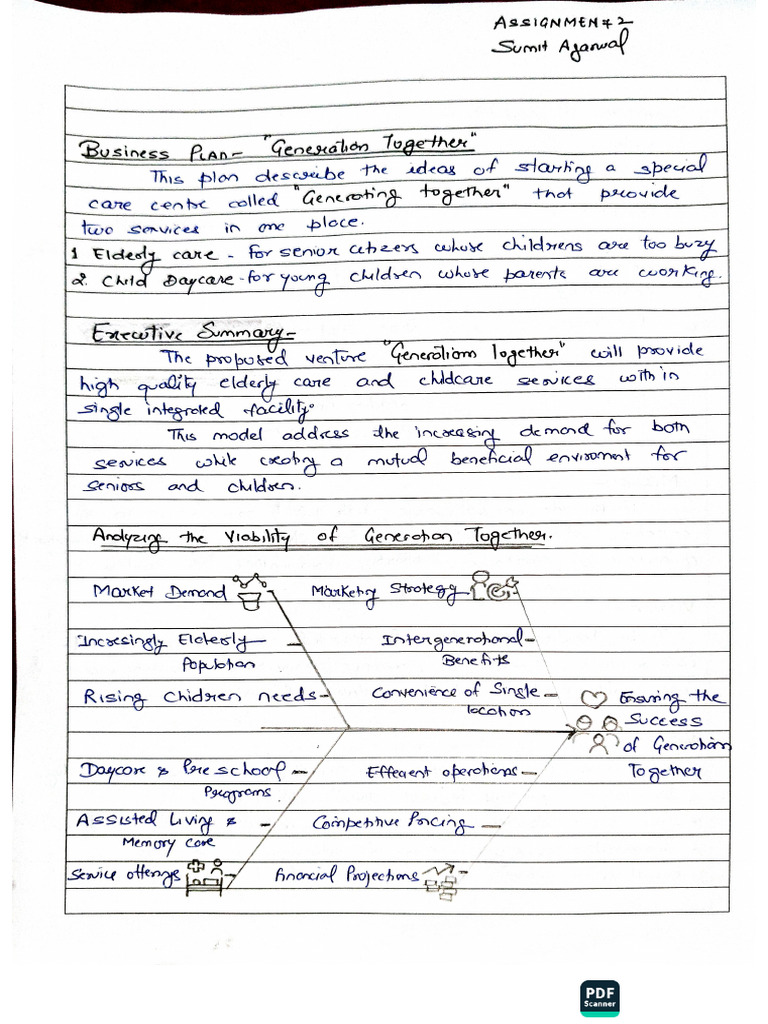 ASSIGNMENT 2
Sumit Agarwal
Business PLAN- "Generation Together"
This plan describe the ideas of starting a special
care centre called "Generating together" that provide
two services in one place.
1 Elderly care - for senior citizens whose childrens are too buzy
2. Child Daycare - for young children whose parents are working.
Executive Summary-
The proposed venture "Generations Together" will provide
high quality elderly care and childcare services with in
single integrated facility.
This model address the increasing demand for both
services while creating a mutual beneficial enviroment for
seniors and children.
Analyzing the Viability of Generation Together.
Market Demand Marketing Strategy
Incresingly Elderly Intergenerational
Population Benefits
Rising Chidren needs Convenience of Single Ensuring the
location Success
of Generation
Daycare & Pre school Effecent operations Together
Programs
Assisted Living & Competitive Pricing
Memory care
Service offerings Financial Projections
PDF
Scanner